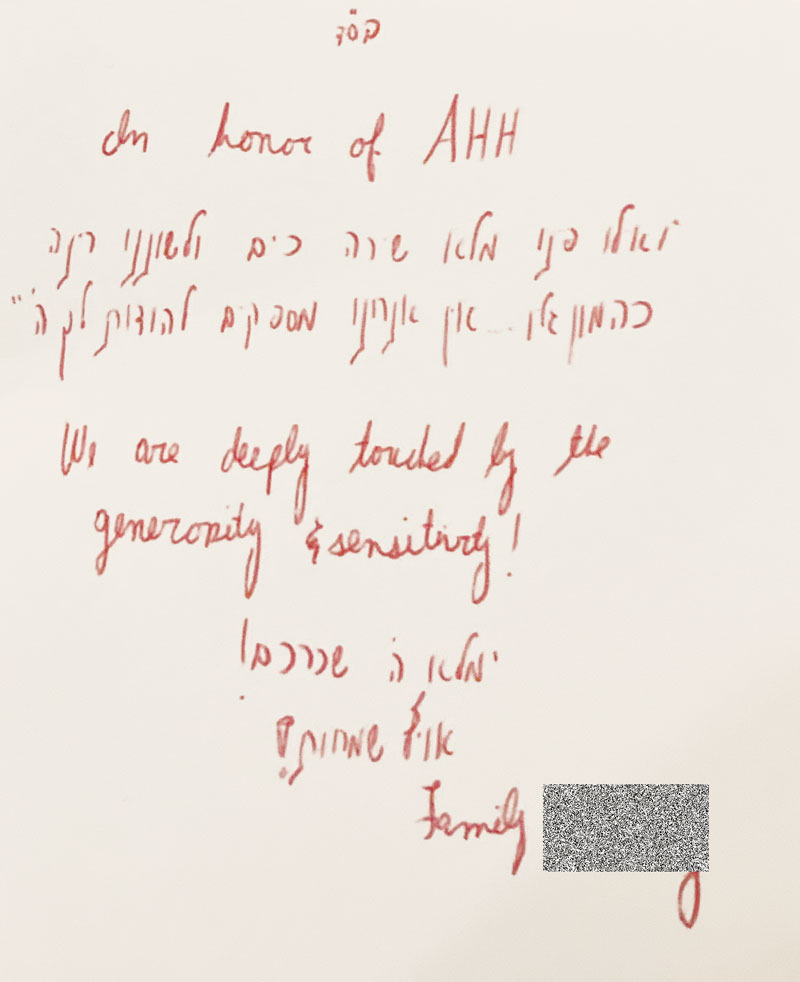 בס"ד
In honor of AHH
ואלו פינו מלא שירה כים ולשוננו רנה
כהמון גליו... אין אנחנו מספיקים להודות לך ה'"
We are deeply touched by the
generosity & sensitivity!
ימלא ה' שכרכם!
אויף שמחות!
Family